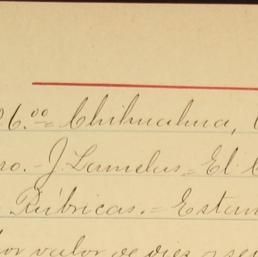 26.00= Chihuahua,
ro.- J. Lamelus= El
Rúbricas.= Estam
por valor de diez y se